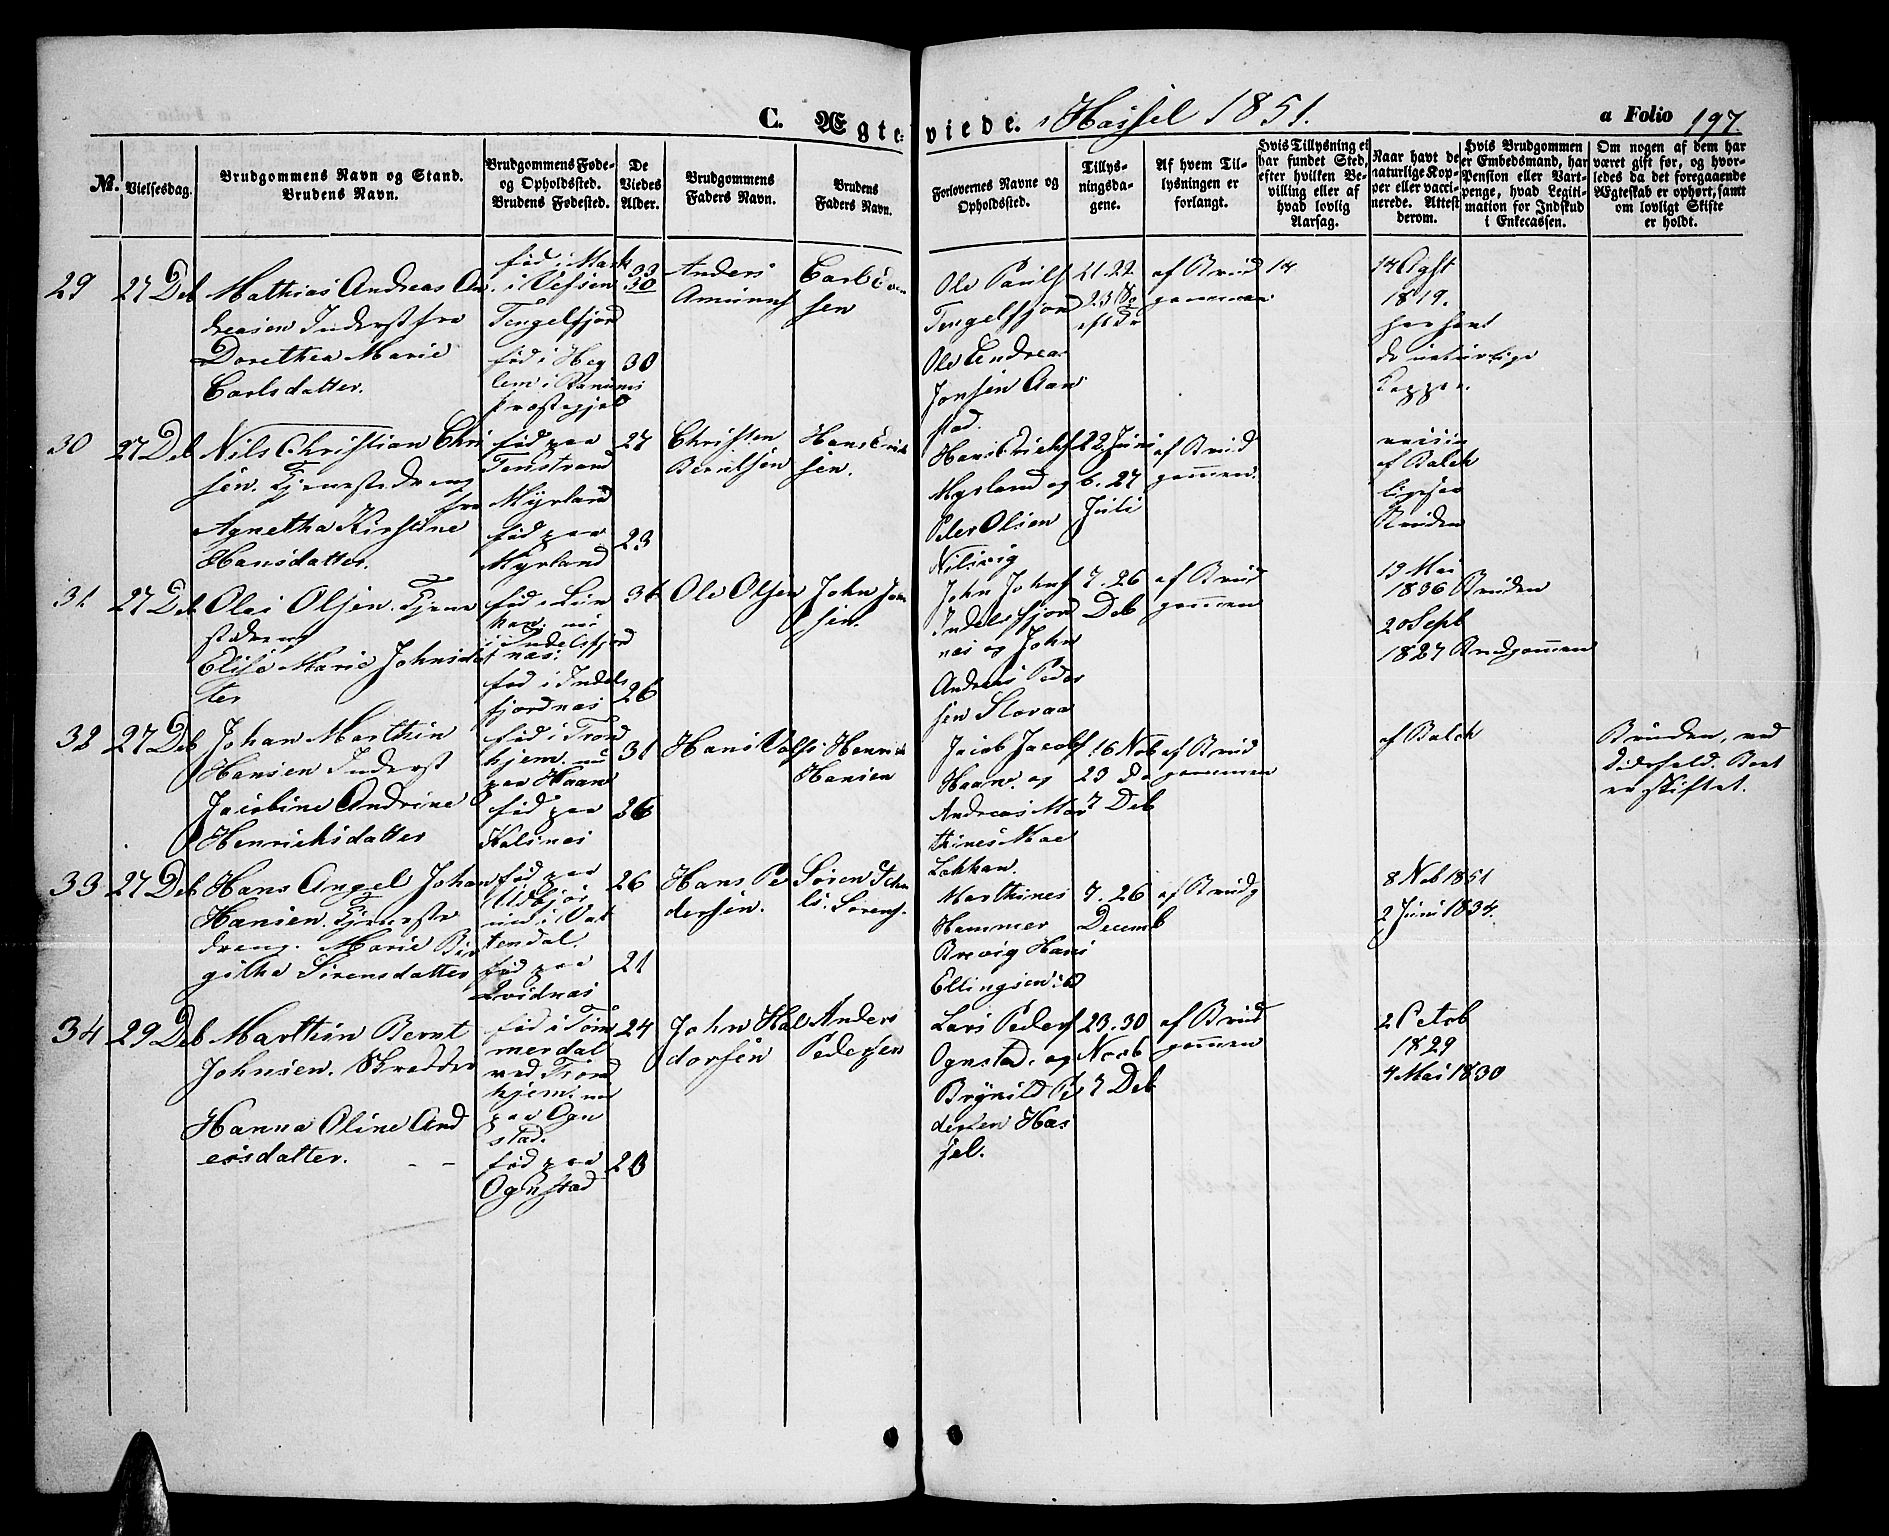 C. Ægteviede. i Hassel 1851. a Folio 197.
No.
Vielsesdag.
Brudgommens Navn og Stand.
Brudens Navn.
Brudgommens Føde-
og Opholdssted.
Brudens Fødested.
De
Viedes
Alder.
Brudgommens
Faders Navn.
Brudens
Faders Navn.
Forlovernes Navne og
Opholdssted.
Tillys-
ningsda-
gene.
Af hvem Til-
lysningen er
forlangt.
Hvis Tillysning ei
har fundet Sted,
efter hvilken Be-
villing eller af
hvad lovlig
Aarsag.
Naar havt de
naturlige Kop-
per eller vacci-
nerede. Attest
derom.
Hvis Brudgommen
er Embedsmand, har
Pension eller Vart-
penge, hvad Legiti-
mation for Indskud
i Enkecassen.
Om nogen af dem har
været gift før, og hvor-
ledes da det foregaaende
Ægteskab er ophørt, samt
om lovligt Skifte
er holdt.
29
27 Deb
Mathias Andreas An
dreasen Inderst fra
Dorethea Marie
Carlsdatter.
fød i Mark
i Vefsen
Tengelfjord
fød i Heg
lem i Ranens
præstegjeld
33
30
30
Anders
Amunds
Carl Even
sen
Ole Pauls
Tengelfjord
Ole Andrea
Jonsen Aan
stad.
21. 22
af Brud
gommen
14
14 Agst
1819.
har havt
de naturlige
Kopper.
30
27 Deb
Nils Christian Chri
sen. Tjenestedreng
fra
Agnetha Kirstine
Hansdatter.
fød paa
Tenstrand
Myrland
fød paa
Myrland
27
23
Christen
Berntsen
Hans Erik
sen.
Hans Eriks
Myrland og
Peder Olsen
Nilsvig
22. Juni
6. 27
Juli
af Brud
gommen.
af Balch
ligesaa
Bruden
31
27 Deb
Olai Olsen. Tjene
stedreng
Elise Marie Johnsdat
ter
nu
i Indelsfjord
næs.
fød i Indels
fjordnæs
31
26
Ole Olsen
John Jon
sen.
John Johns
Indelsfjord
næs og John
Andreas Peder
sen Slovaa
7. 26
Deb
af Brud
gommen
19 Mai
1836 Bruden
20 Sept
1827 Brudgommen
32
27 Deb
Johan Marthin
Hansen Inderst
Jacobine Andrine
Henrichsdatter
fød i Trond
hjem. nu
paa Haane
fød paa
Kalsnæs
31
26
Hans Vols
Henrich
Hansen
Jacob Jacobs
Haane. og
Andreas Mar
thines Moe
Lekhan.
16 Nob
23 Do
7 Deb
af Brud
gommen
af Balch
Bruden, ved
Dødsfald. Boet
er skiftet.
33
27 Deb
Hans Angel Johan
Hansen. Tjeneste
dreng. Marie Bir
githe Sørensdatter
fød paa
Uldbjør
nu i Vot
tendal.
fød paa
Qvidnæs
26
21
Hans Pe
dersen.
Søren Joha
ls. Sørens.
Marthines
Hammer
Brevig Hans
Ellingsen
7. 26
Decemb
af Brudg
8 Nob 1851
2 Juni 1834.
34
29 Deb
Marthin Bernt
Johnsen. Skredder
Hanna Oline And
ersdatter.
fød i Tøm
merdal
ved Trond
hjem. nu
paa Ogn
stad.
fød paa
Ognstad
24
23
John Hal
dorsen
Anders
Pedersen
Lars Peders
Ognstad. og
Brynild Pe
dersen Has
sel.
23. 30
Novb
7 Deb
af Brud
gommen
2 Octob
1829
4 Mai 1830